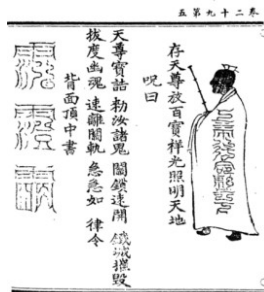 卷二十九第五
存天尊放百寶祥光照明天地
呪曰
天尊寶誥 勑汝諸鬼 鎖速開 鐵城摧毀
拔度幽魂 速離闇軌 急急如 律令
背面頂中書